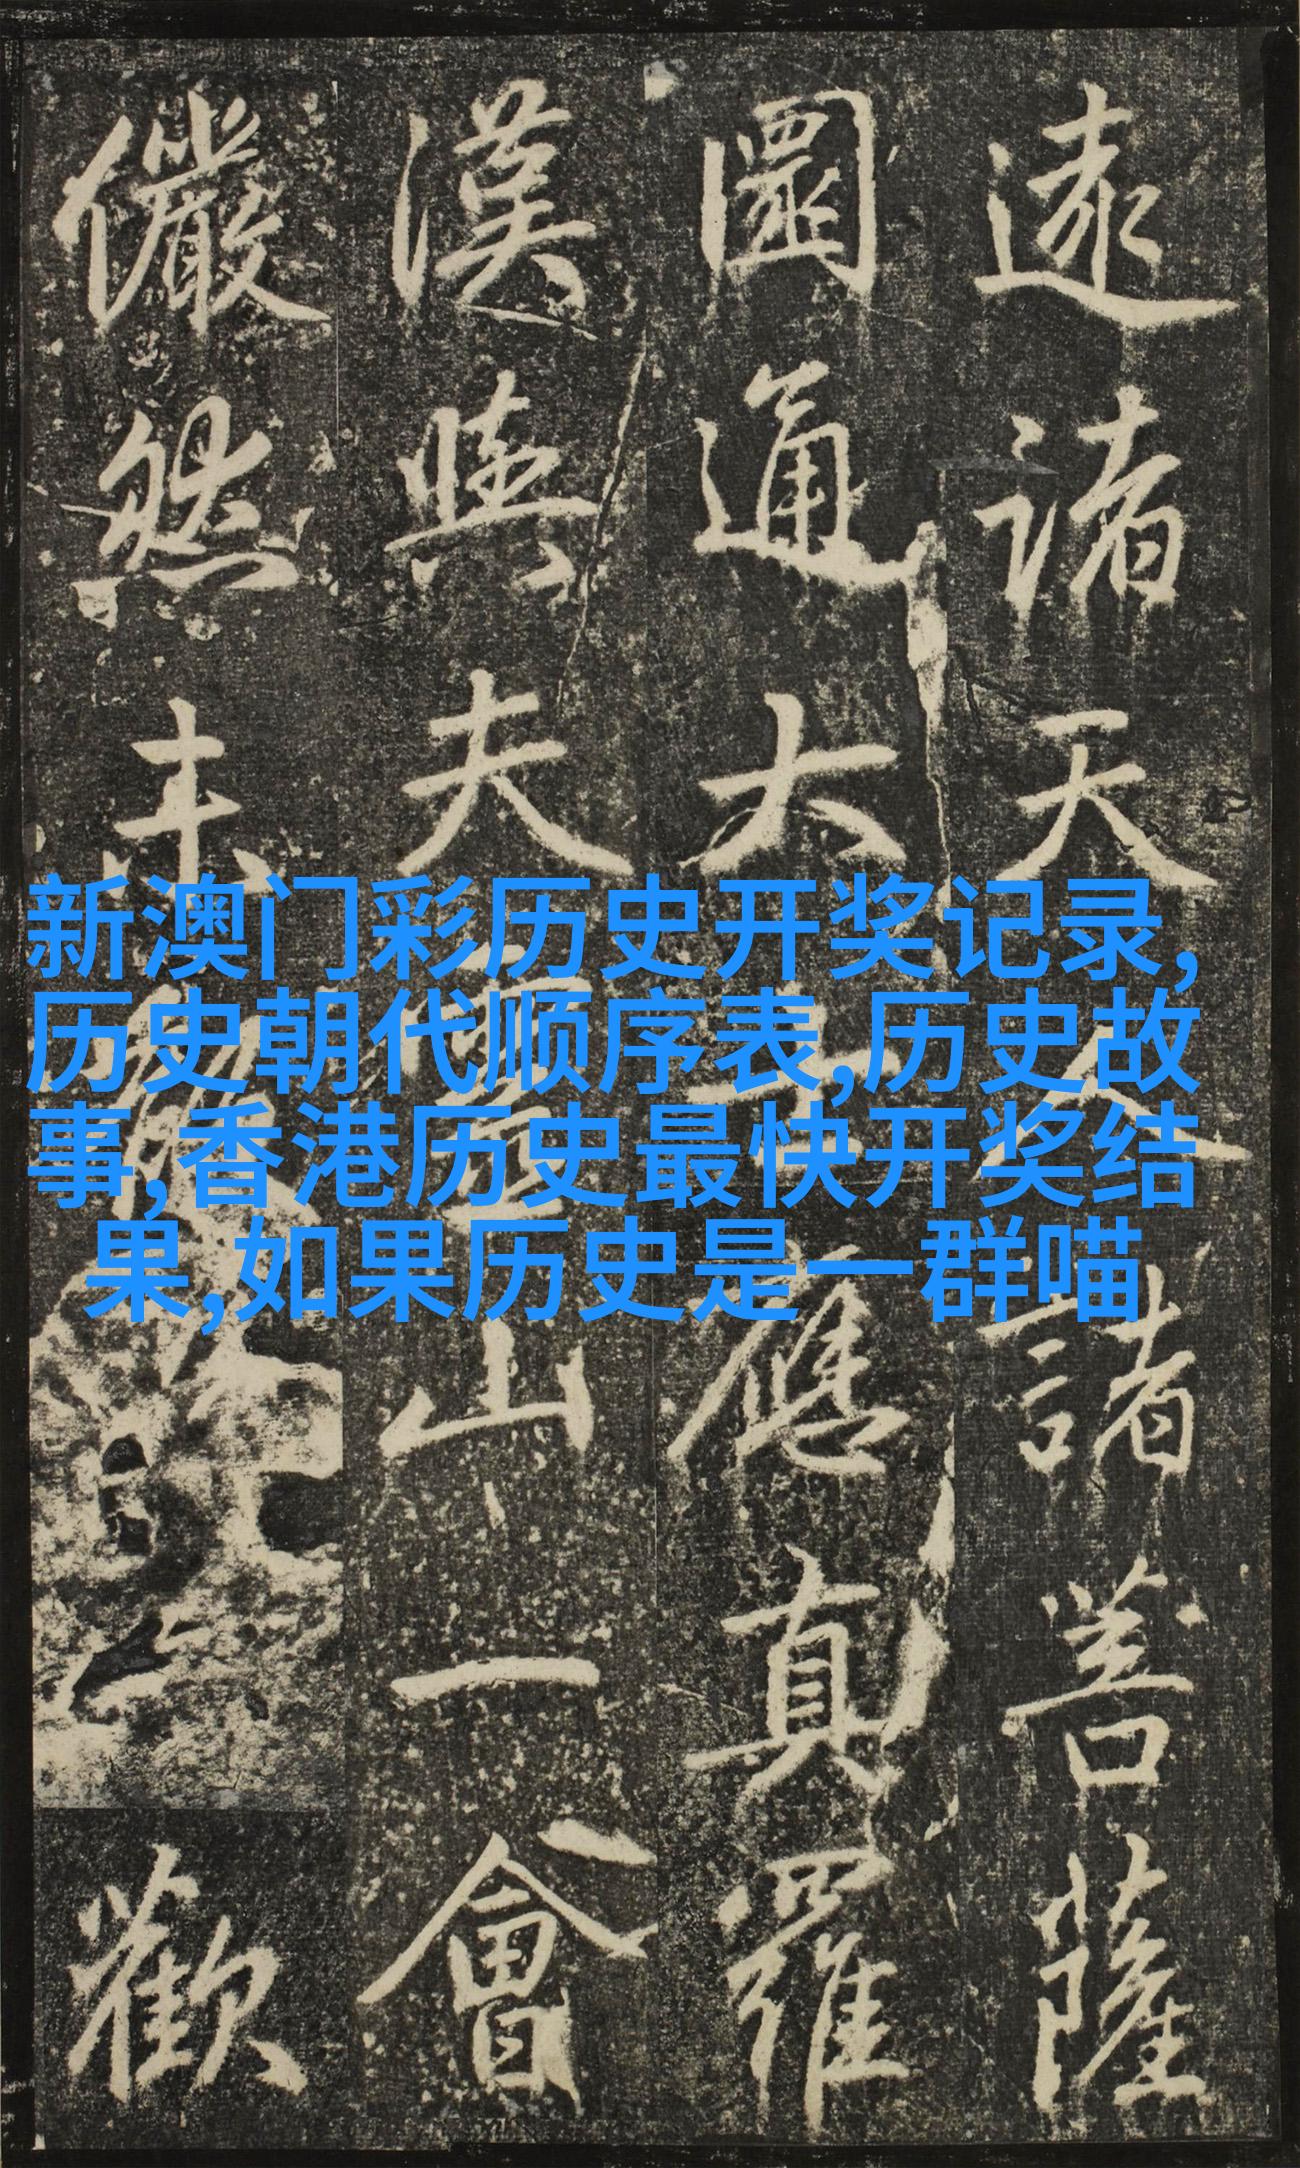 新澳门彩历史开奖记录,
历史朝代顺序表,历史故
事,香港历史最快开奖结
果,如果历史是一群喵
諸天人諸菩薩
圜通大士應真羅
漢與夫靈山一會
儼然未歡